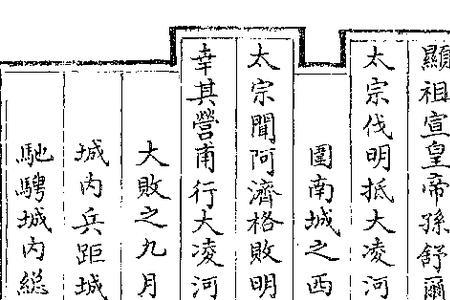 顯祖宣皇帝孫舒爾
太宗伐明抵大凌河
圍南城之西
太宗聞阿濟格敗明
幸其營甫行大凌河
大敗之九月
城内兵距城
馳騁城内総